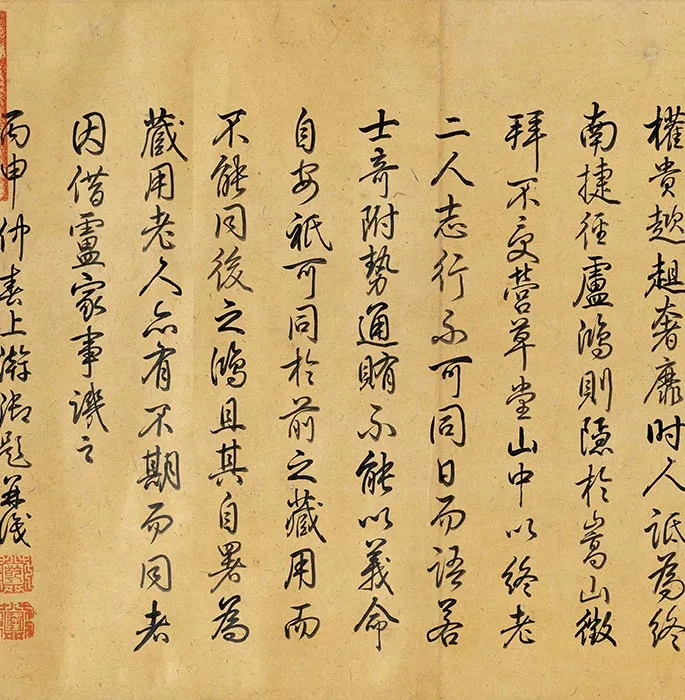 權貴趑趄奢靡時人詆為終
南捷徑盧鴻則隱於嵩山徵
拜不受營草堂山中以終老
二人志行不可同日而語若
士奇附勢通賄不能以義命
自安祇可同於前之藏用而
不能同後之鴻且其自署為
藏用老人亦有不期而同者
因借盧家事譏之
丙申仲春上澣御題並識